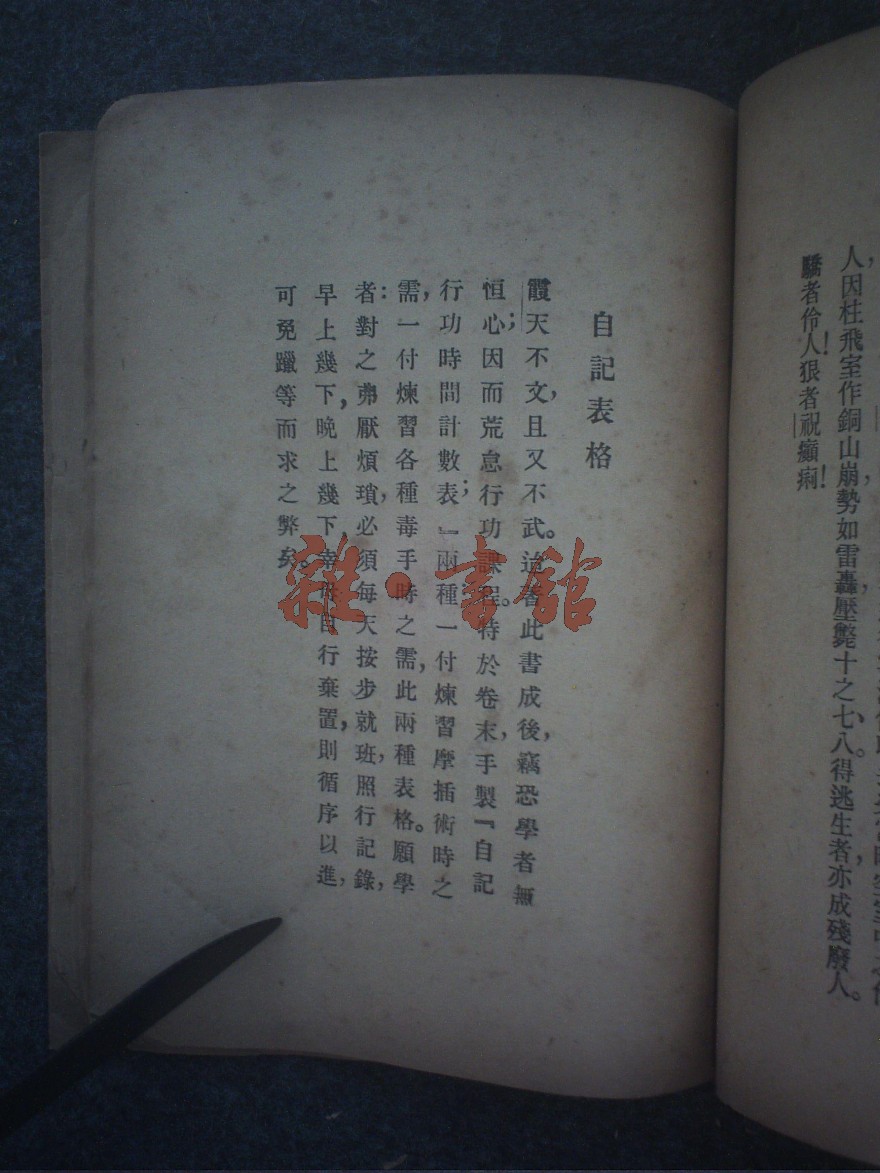 人因柱飛室作銅山崩,勢如雷轟,壓斃十之七八。得逃生者,亦成殘廢人。
驕者伶人!狠者祝癲痢!
自記表格
霞天不文,且又不武。迨著此書成後,竊恐學者無
恒心;因而荒怠行功課程。特於卷末,手製『自記
行功時間計數表』兩種;一付煉習摩插術時之
需,一付煉習各種毒手時之需,此兩種表格。願學
者:對之弗厭煩瑣,必須每天按步就班,照行記錄,
早上幾下,晚上幾下,幸毋自行棄置,則循序以進,
可免躐等而求之弊矣。
雜·書館